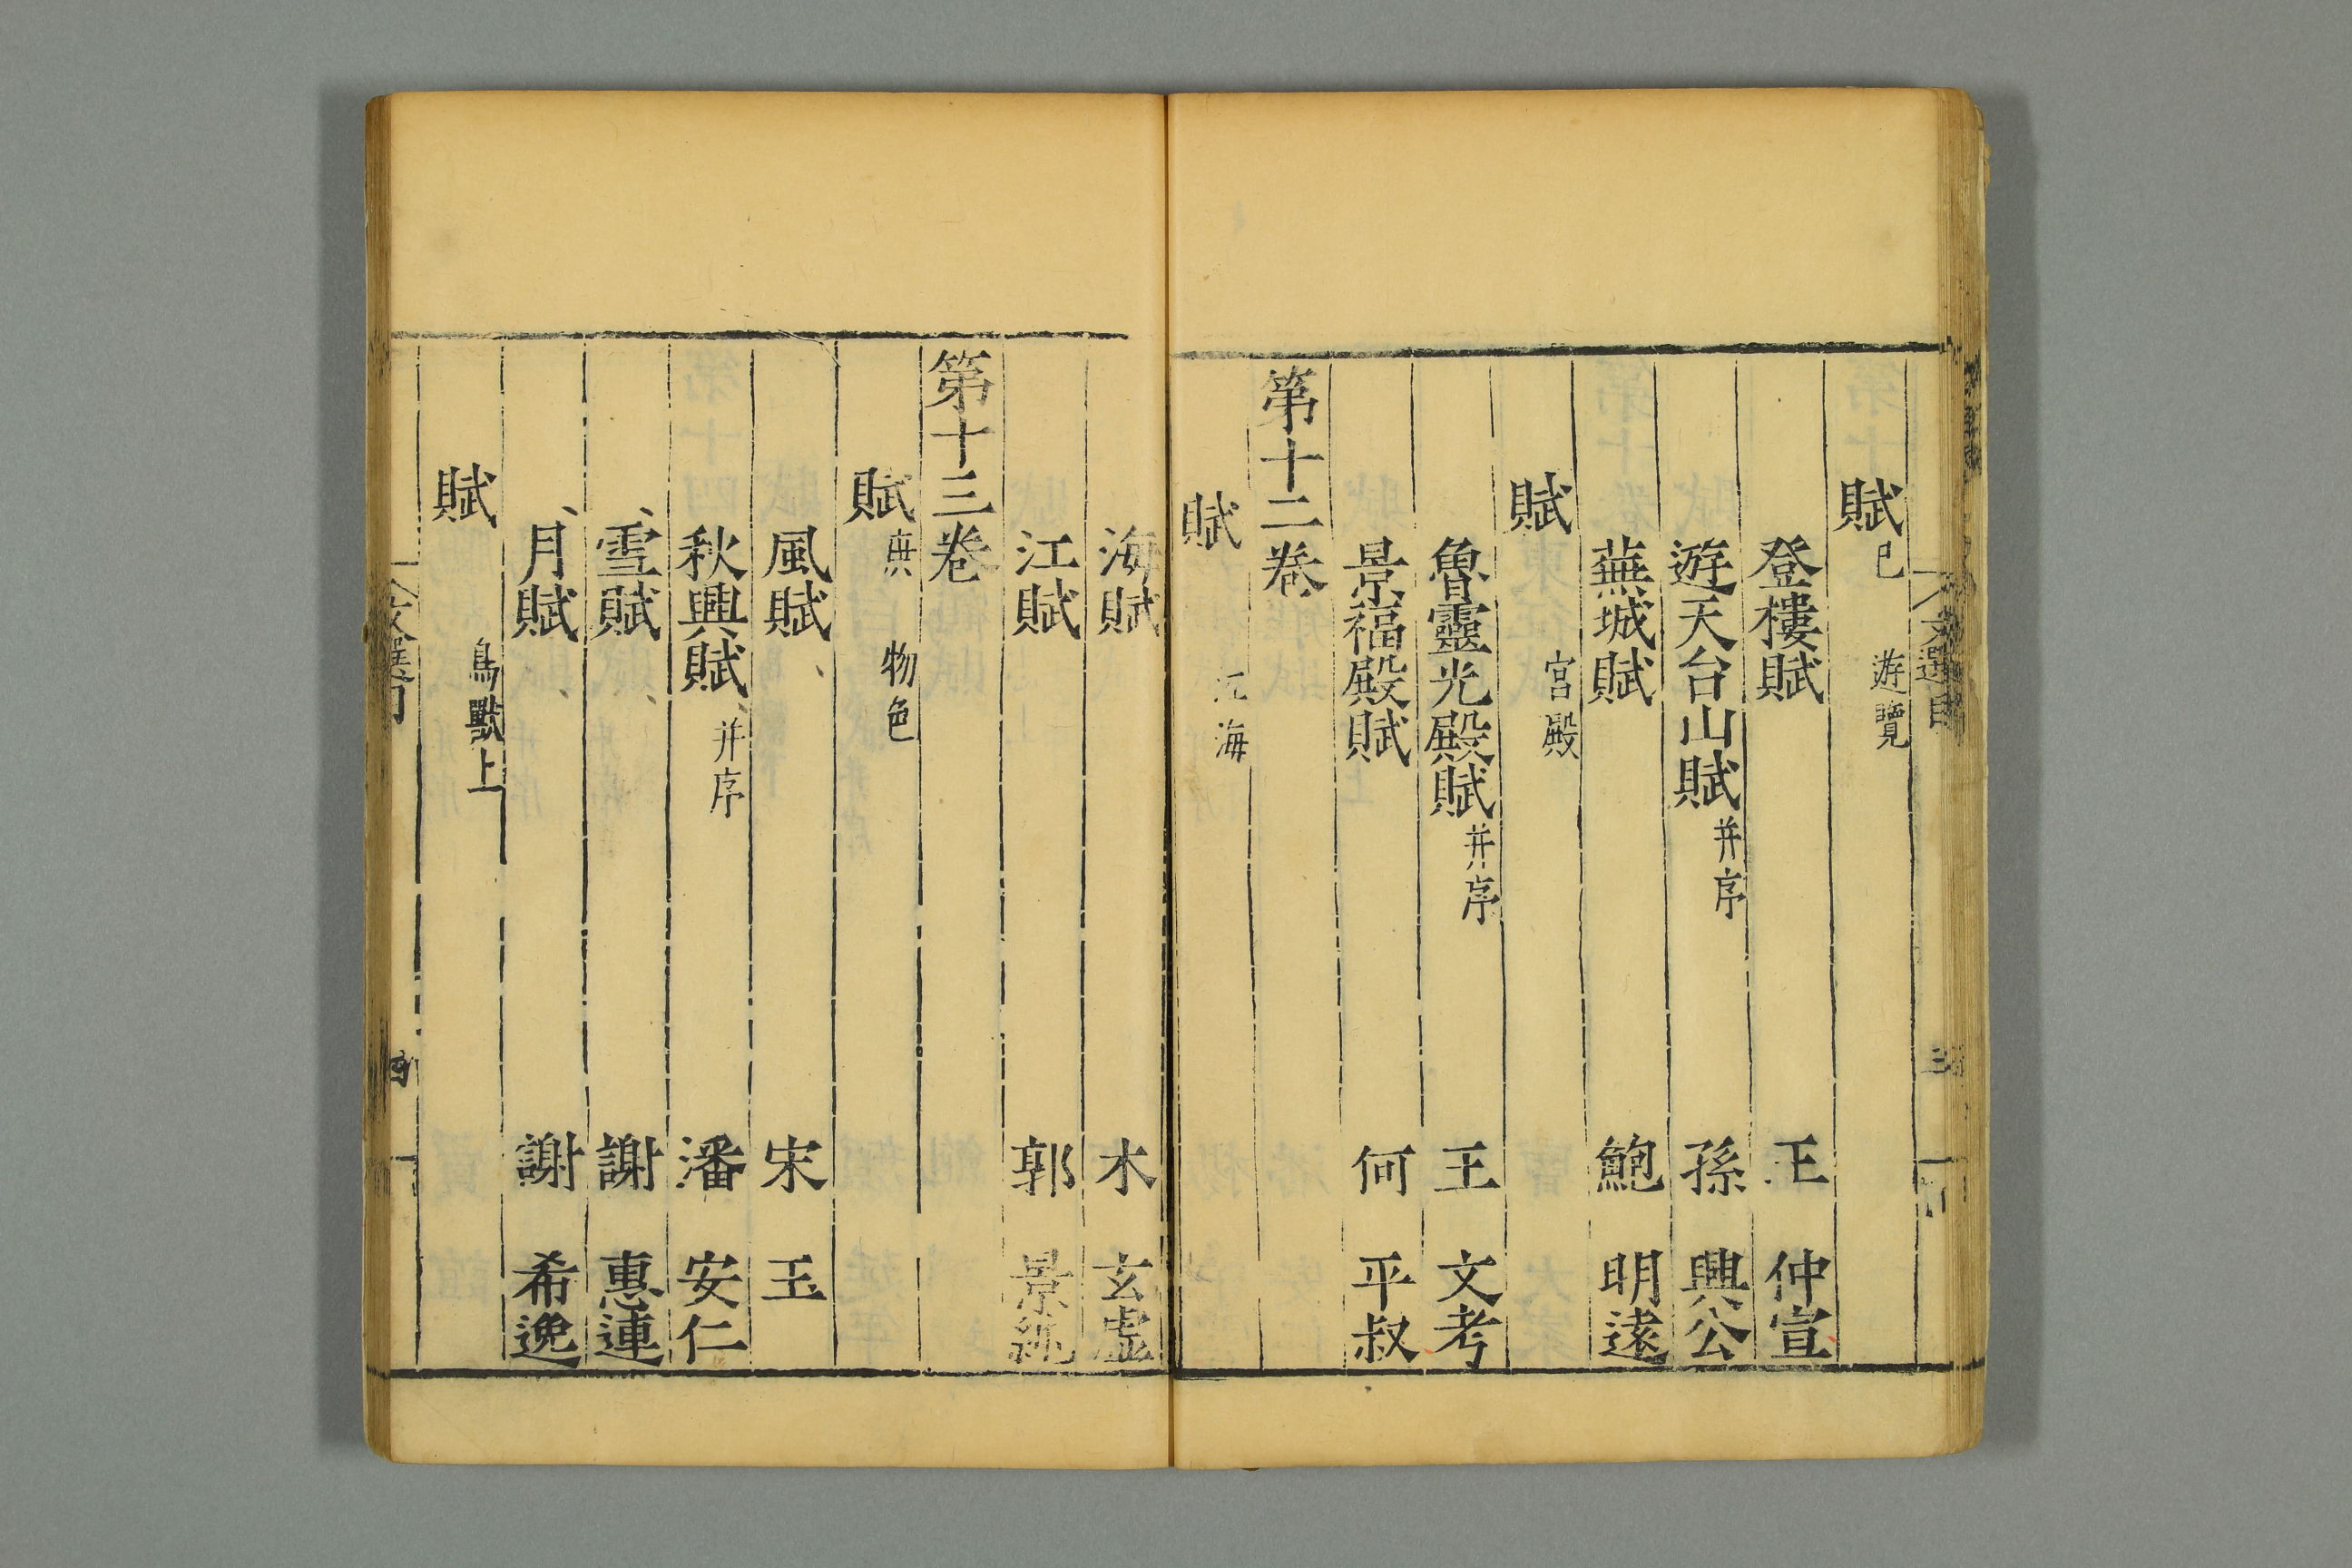 文選目 三
賦 己 遊覽
登樓賦 王 仲宣
遊天台山賦 并序 孫 興公
蕪城賦 鮑 明遠
賦 宮殿
魯靈光殿賦 并序 王 文考
景福殿賦 何 平叔
第十二卷
賦 江海
海賦 木 玄虛
江賦 郭 景純
第十三卷
賦 庚 物色
風賦 宋 玉
秋興賦 并序 潘 安仁
雪賦 謝 惠連
月賦 謝 希逸
賦 鳥獸上
文選目 四